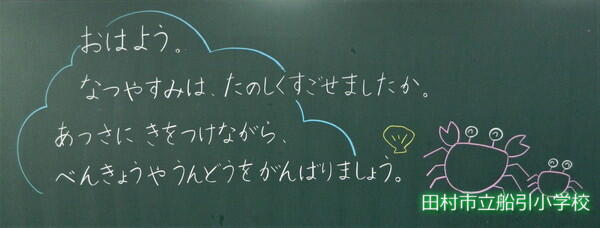 おはよう。
なつやすみは、たのしくすごせましたか。
あつさに きをつけながら、
べんきょうやうんどうをがんばりましょう。
田村市立船引小学校